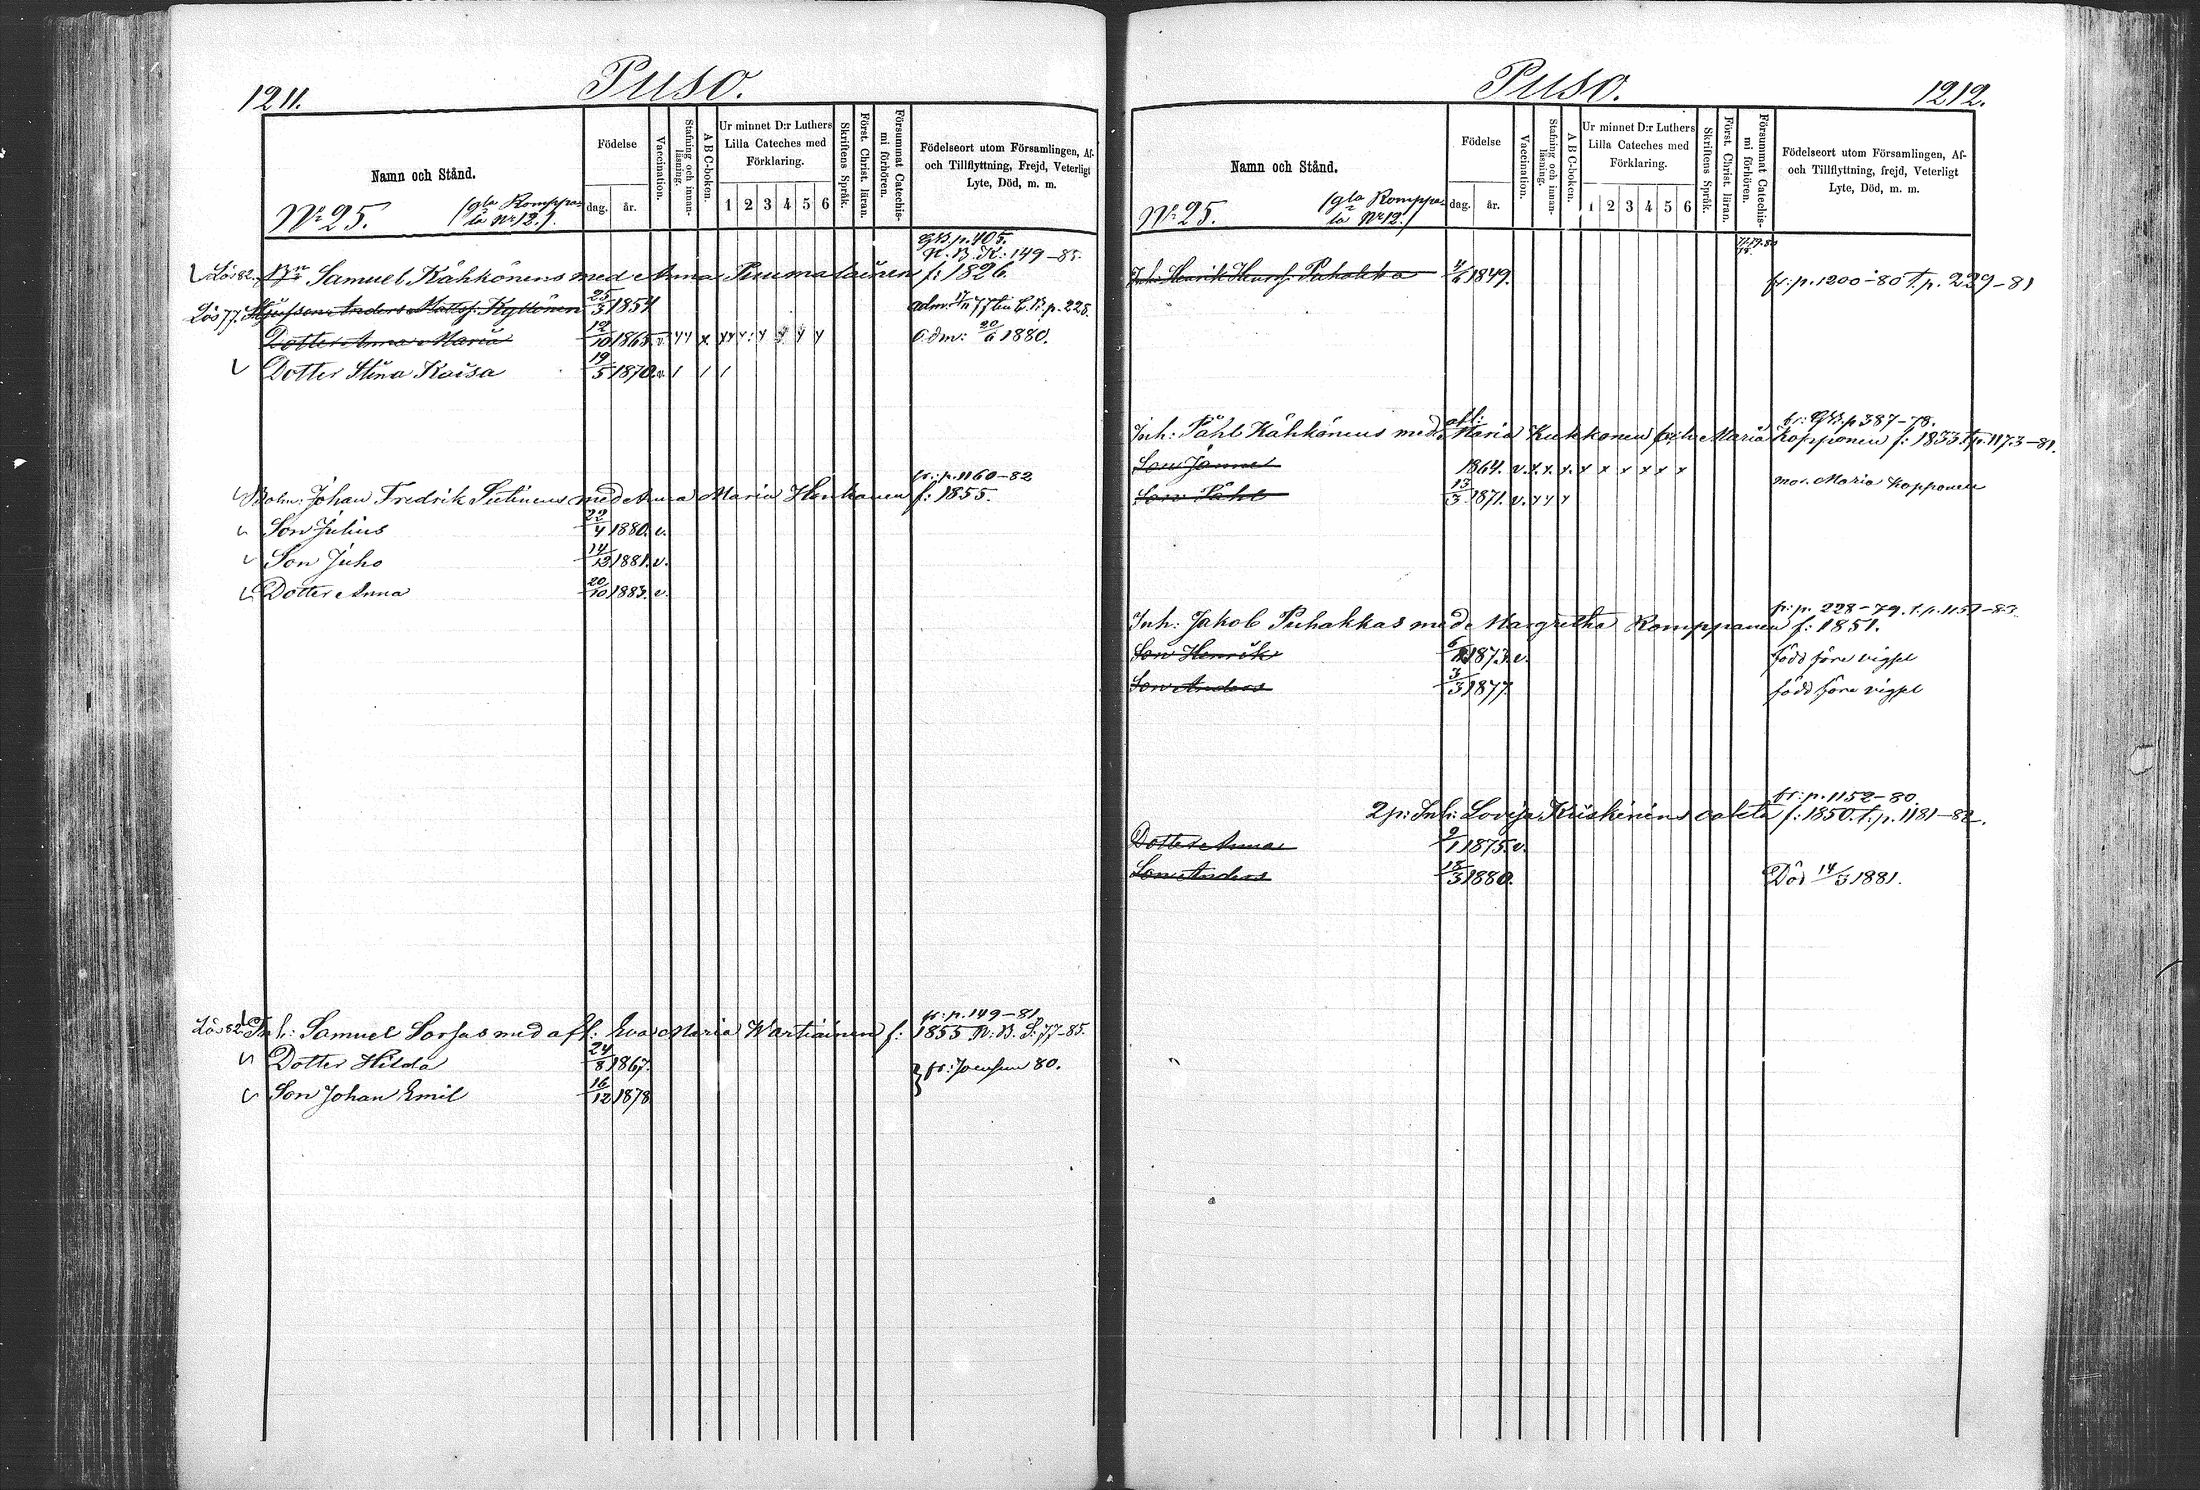 1211.
Puso.
Namn och Stånd.
Födelse
dag.
år.
Vaccination.
Stafning och innanläsning.
ABC-boken.
Ur minnet D:r Luthers
Lilla Cateches med
Förklaring.
1 2 3 4 5 6
Skriftens Språk.
Först. Christ. läran.
Försummat Catechismi förhören.
Födelseort utom Församlingen, Af-
och Tillflyttning, Frejd, Veterligt
Lyte, Död, m. m.
No 25.
(gla Romppa-
la No 12.)
p. 405.
N. B. K: 149-85.
Lös 82. Samuel Kähkönens med Anna Puumalainen f: 1826.
Lös 77. Anders Mattss. Kyttönen 25/3 1854 adm: 77 p. 225.
Dotter Anna Maria 12/10 1865 v. Adm: 20/6 1880.
Dotter Stina Kaisa 19/5 1870. v. / / /
fr: p. 1160-82
Bolm: Johan Fredrik Sutinens med Anna Maria Henhanen f: 1855.
Son Julius 22/4 1880. v.
Son Juho 14/12 1881. v.
Dotter Anna 20/10 1883. v.
fr: p. 149-81.
Lös 82 Inh: Samuel Sorsas med afl: Eva Maria Wartiainen f: 1855 N. B. S: 77-85.
Dotter Hilda 24/8 1867.
} fr: Joensuu 80.
Son Johan Emil 16/12 1878
Puso.
1212.
Namn och Stånd.
Födelse
dag.
år.
Vaccination.
Stafning och innanläsning.
ABC-boken.
Ur minnet D:r Luthers
Lilla Cateches med
Förklaring.
1 2 3 4 5 6
Skriftens Språk.
Först. Christ. läran.
Försummat Catechismi förhören.
Födelseort utom Församlingen, Af-
och Tillflyttning, frejd, Veterligt
Lyte, Död, m. m.
No 25.
(gla Romppa-
la No 12.)
Inh: Henrik Henrss. Puhakka 1849. fr: p. 1200-80 t. p. 229-81
fr: p 387-78.
Inh: Påhl Kähkönens med afl: Maria Kukkonen Maria Kopponen f: 1833. t. p. 1173-81.
Son Janne 1864. v. x. x. x. x x x x x x
Son Påhl 13/3 1871. v. x x x
mor. Maria Kopponen
fr: p. 228-79. t. p. 1157-83.
Inh: Jakob Puhakkas med Margretha Romppanen f: 1851.
Son Henrik 1873. v. född före vigsel
Son Anders 3/3 1877 född före vigsel
fr: p. 1152-80.
2 p: Inh: Lovisa Kiiskinens oäkta f: 1850. t. p. 1181-82.
Dotter Anna 9/1 1875. v.
Son Anders 18/3 1880. Död 14/3 1881.